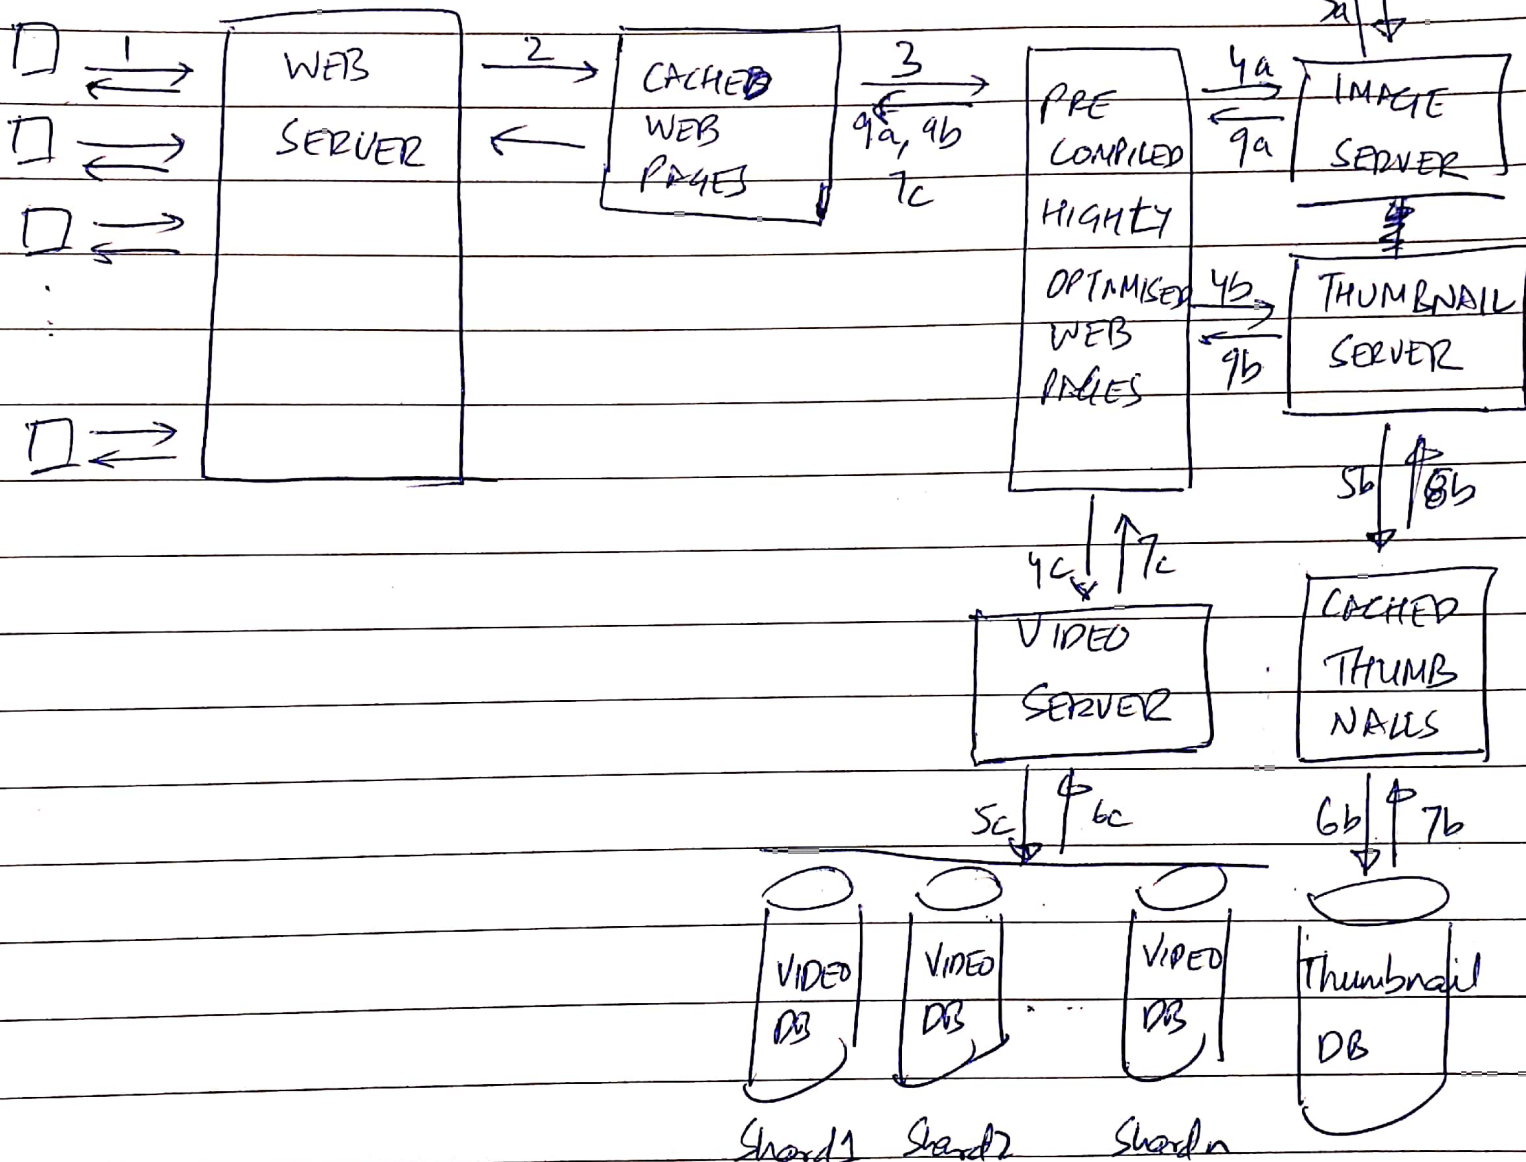 1
WEB
SERVER
2
CACHED
WEB
PAGES
3
9a, 9b
7c
PRE
COMPILED
HIGHLY
OPTAMISED
WEB
PAGES
4a
9a
IMAGE
SERVER
4b
9b
THUMBNAIL
SERVER
5b
8b
4c
7c
VIDEO
SERVER
CACHED
THUMB
NAILS
5c
6c
6b
7b
VIDEO
DB
VIDEO
DB
. ...
VIDEO
DB
Thumbnail
DB
Shard1
Shard2
Shardn